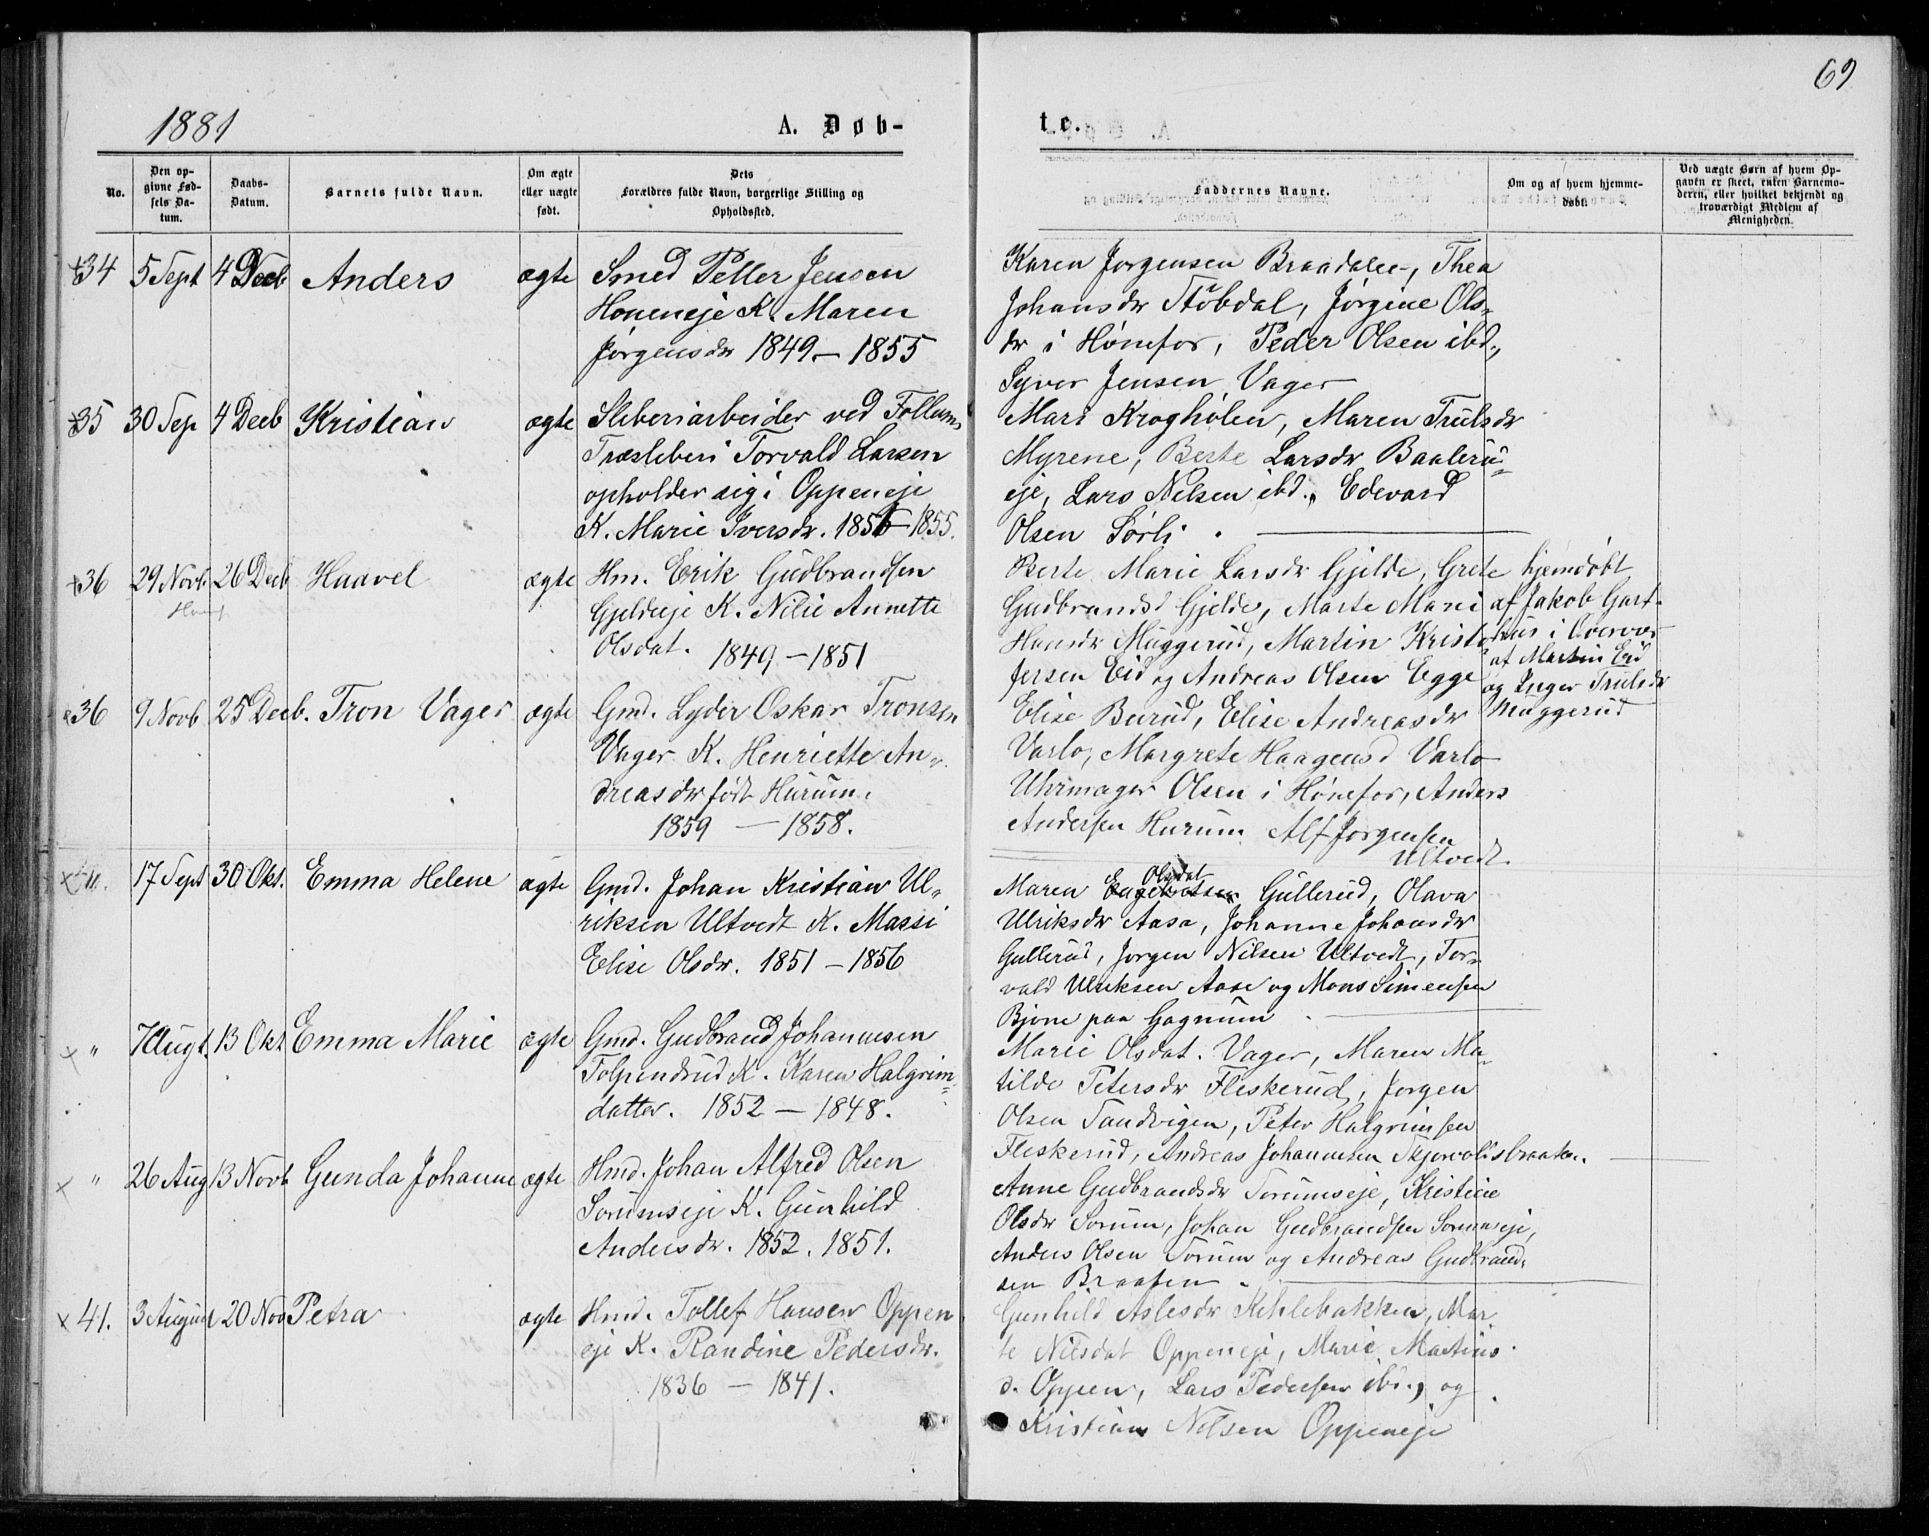 69
1881
A. Døb-
te.
No.
Den op-
givne Fød-
sels Da-
tum.
Daabs-
Datum.
Barnets fulde Navn.
Om ægte
eller uægte
født.
Dets
Forældres fulde Navn, borgerlige Stilling og
Opholdssted.
Faddernes Navne.
Om og af hvem hjemme-
døbt.
Ved uægte Børn af hvem Op-
gaven er skeet, enten Barnemo-
deren, eller hvilket bekjendt og
troværdigt Medlem af
Menigheden.
34 5 Sept 4 Decb Anders ægte Smed Peller Jensen
Honeneje K. Maren
Jørgensdr 1849 – 1855
Karen Jorgensen Braadalee, Thea
Johansdr Støbdal, Jørgine Ols-
dr i Hønefos, Peder Olsen ibd.,
Syver Jensen Vager
35 30 Sep 4 Decb Kristian ægte Sliberiarbeider ved Follum
Træsliberi Torvald Larsen
opholder sig i Oppeneje
K. Marie Iversdr. 1856 – 1855.
Mari Kroghølen, Maren Trulsdr
Myrene, Berte Larsdr Baaleru-
eje, Lars Nilsen ibd., Edevard
Olsen Sørli
36 29 Novb. 26 Decb Haavel ægte Hm. Erik Gudbrandsen
Gjeldeeje K. Nilie Annette
Olsdat. 1849 – 1851
Berte Marie Larsdr Gjelde, Grete
Gudbrandsd Gjelde, Marte Marie
Hansdr Muggerud, Martin Kristo-
fersen Eid og Andreas Olsen Egge
hjemdøbt
af Jakob Gart-
hus i
af Martin Eid
og Inger Trulsdr
Muggerud
36 9 Novb 25 Decb. Tron Vager ægte Gmd. Lyder Oskar Tronsen
Vager K. Henriette An-
dreasdr født Hurum.
1859 – 1858.
Elise Burud, Elise Andreasdr
Varlo, Margrete Haagensd Varlo
Uhrmager Olsen i Hønefos, Anders
Andersen Hurum Alf Jorgensen
Ultvedt.
17 Sept 30 Okt. Emma Helene ægte Gmd. Johan Kristian Ul-
riksen Ultvedt K. Massi
Elise Olsdr. 1851 – 1856
Olsdat
Maren Gullerud, Olava
Ulriksdr Aasa, Johanne Johansdr
Gullerud, Jorgen Nilsen Ultvedt, Tor-
vald Ulriksen Aase og Mons Simensen
Bjone paa Gagnum
" 7 Augt. 13 Okt Emma Marie ægte Gmd. Gudbrand Johannesen
Tolpendrud K. Karen Halgrim-
datter. 1852 – 1848.
Marie Olsdat. Vager, Maren Ma-
tilde Petersdr Fleskerud, Jorgen
Olsen Sandvigen, Peter Halgrimsen
Fleskerud, Andreas Johannesen Skjorvoldsbraaten.
" 26 Aug 13 Novb Gunda Johanne ægte Hmd. Johan Alfred Olsen
Sorumseje K. Gunhild
Andersdr. 1852. 1851.
Anne Gudbrandsdr Sorumseje, Kristine
Olsdr Sorum, Johan Gudbrandsen Sorumseje,
Anders Olsen Sorum og Andreas Gudbrand-
sen Braaten
41. 3 August 20 Nov Petra ægte Hmd. Tollef Hansen Oppen
eje K. Randine Pedersdr.
1836 – 1841.
Gunhild Aslesdr Kihlebakken, Mar-
te Nilsdat Oppeneje, Marie Martins
d. Oppen, Lars Pedersen ibd., og
Kristian Nilsen Oppeneje